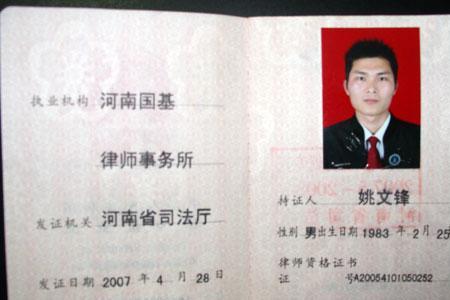 执业机构 河南国基
律师事务所
发证机关 河南省司法厅
发证日期 2007 年 4 月 28 日
持证人 姚文锋
性别 男 出生日期 1983 年 2 月 25
律师资格证书
证 号 A20054101050252